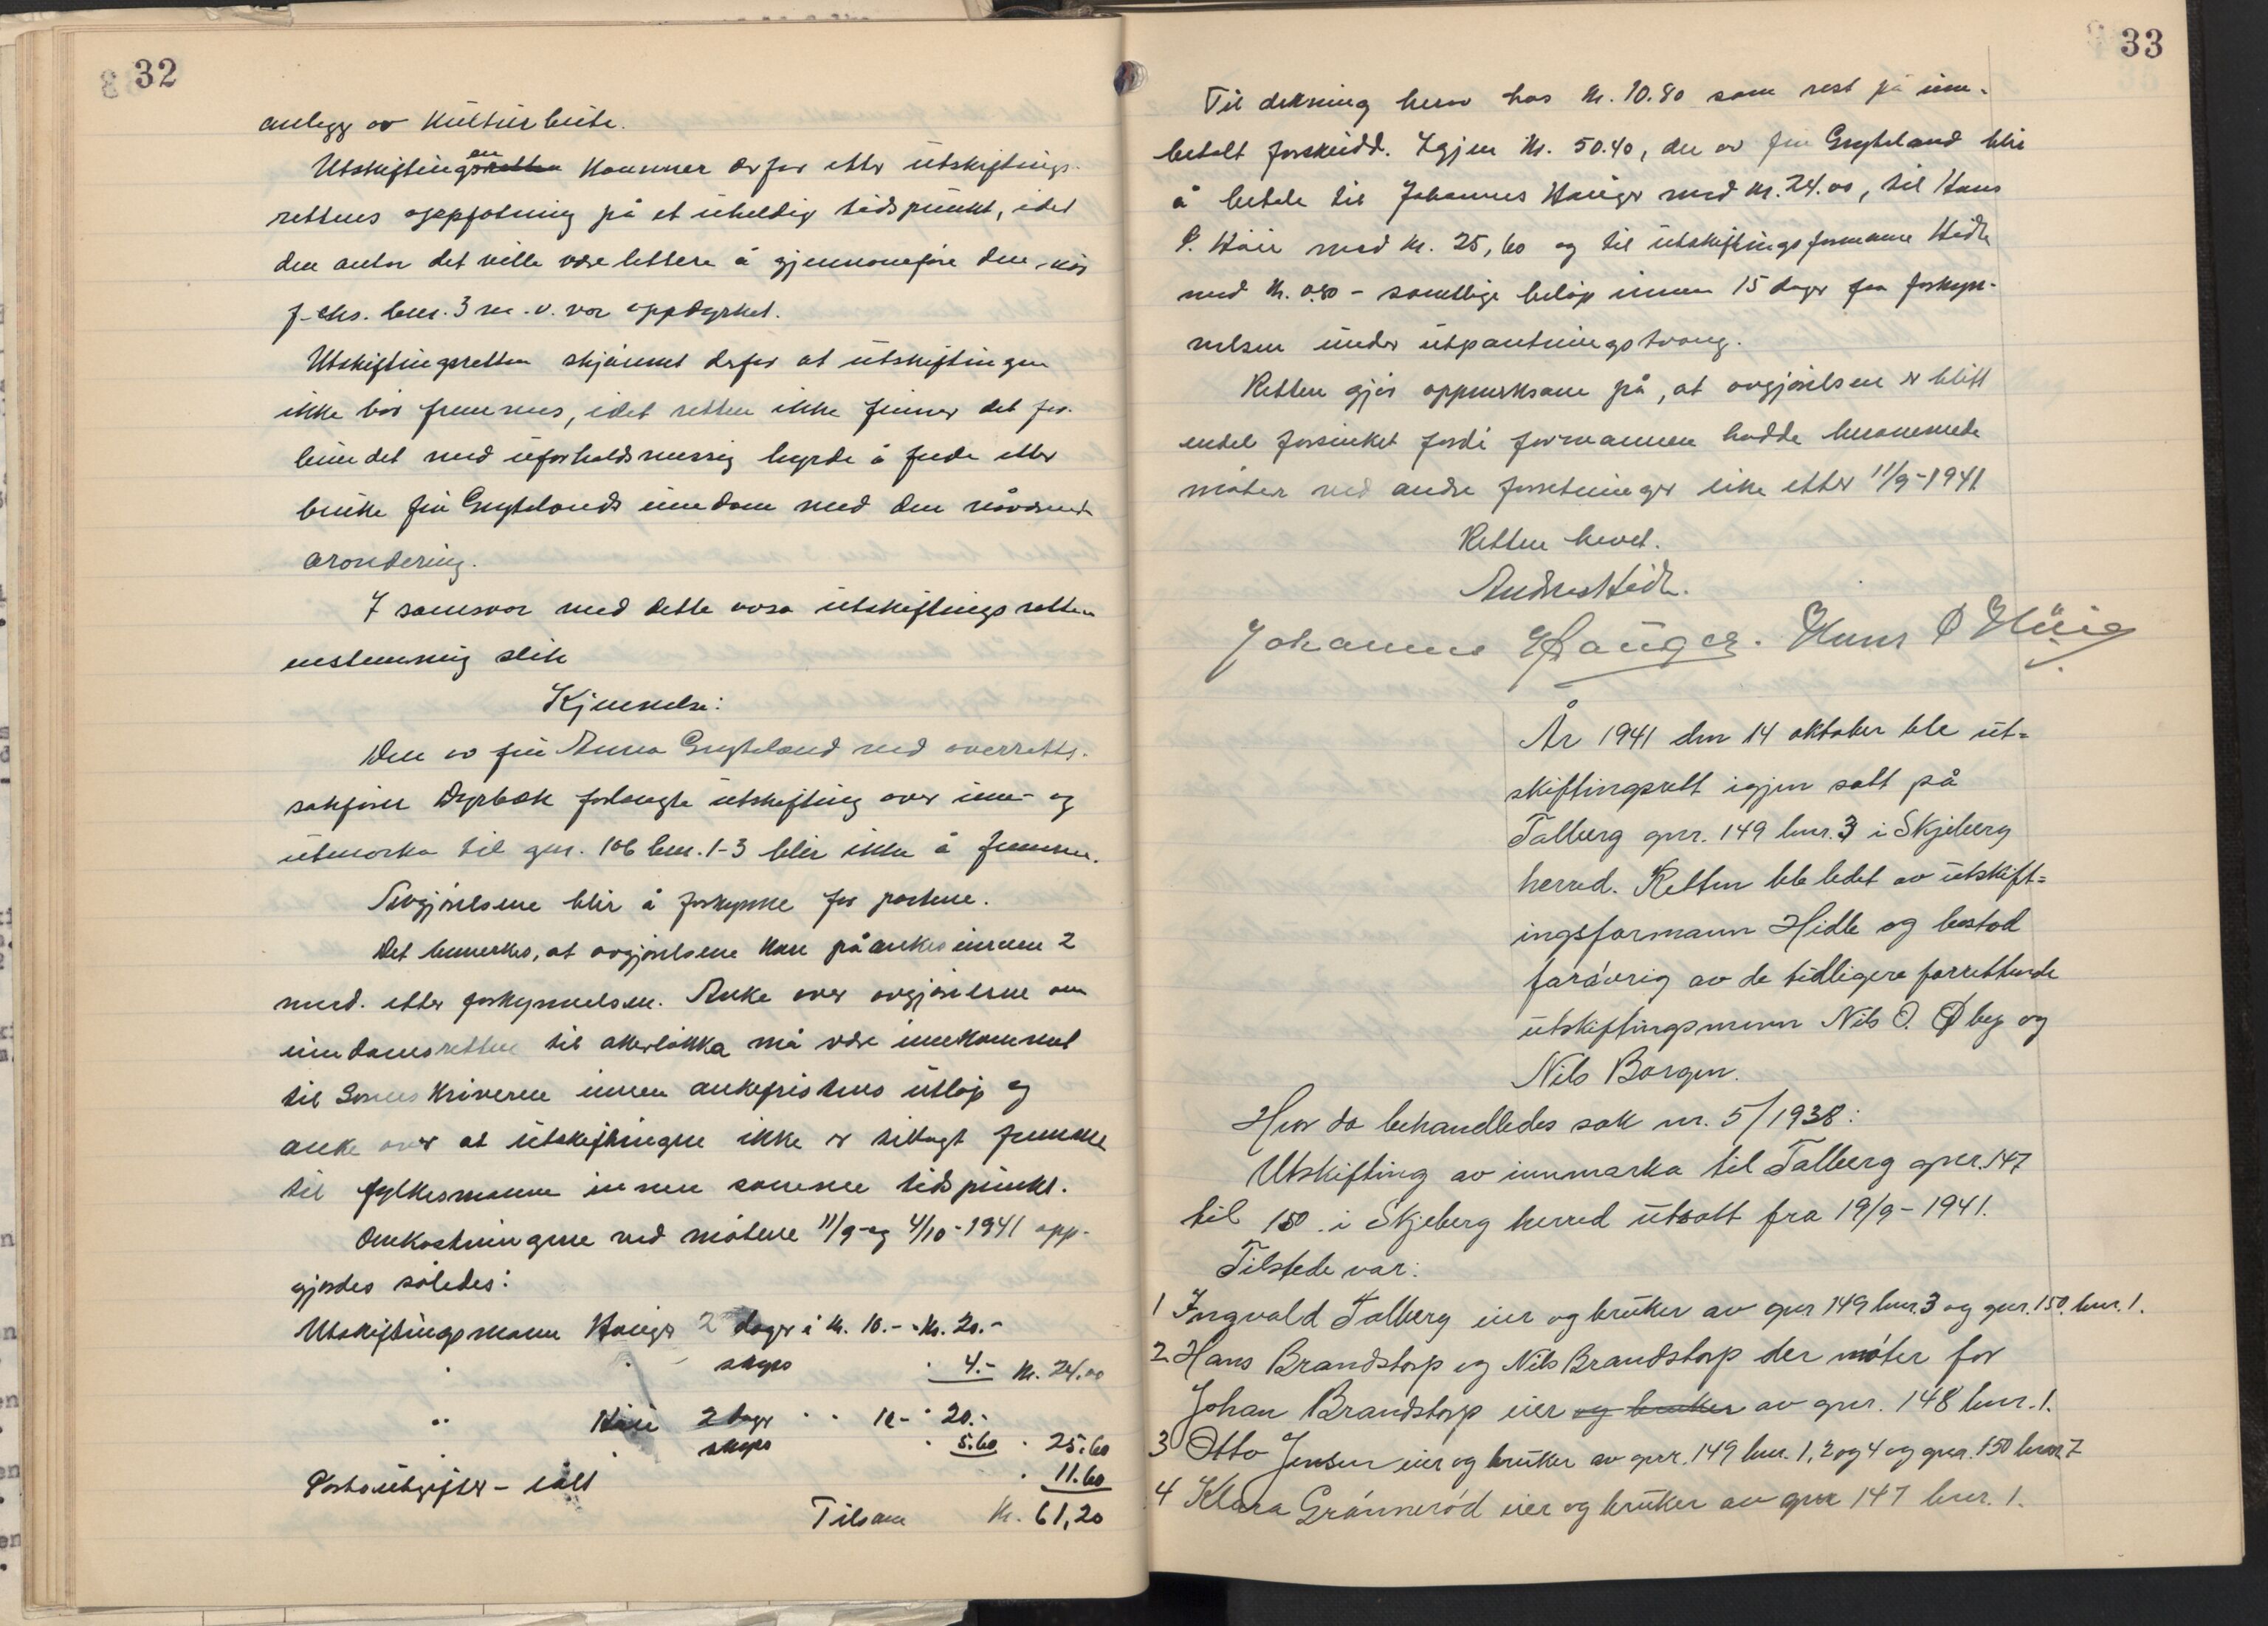 32
anlegg av kulturbeite.
Utskiftingen kommer derfor etter utskiftings-
rettens oppfatning på et uheldig tidspunkt, idet
den antar det ville være lettere å gjennomføre den, når
f. eks. bnr. 3 m. v. var oppdyrket.
Utskiftingsretten skjønnet derfor at utskiftingen
ikke bør fremmes, idet retten ikke finner det for-
bundet med uforholdsmessig byrde å fade eller
bruke fru Grytelands eiendom med den nåværende
arondering.
I samsvar med dette avsa utskiftingsretten
enstemmig slik
Kjennelse:
Den av fru Anna Gryteland ved overretts-
sakfører Dyrbæk forlangte utskifting over inn- og
utmarka til gnr. 106 bnr. 1-3 blir ikke å fremme.
Avgjørelsene blir å forkynne for partene.
Det bemerkes, at avgjørelsene kan påankes innen 2
mnd. etter forkynnelsen. Anke over avgjørelsene om
eiendomsretten til akerløkka må være innkommet
til Sorenskriveren innen ankefristens utløp og
anke over at utskiftningen ikke er tillagt fremme
til fylkesmannen innen samme tidspunkt.
Omkostningene ved møtene 11/9 og 4/10-1941 opp-
gjordes således:
Utskiftingsmann Hauger 2 dager à kr. 10.- kr. 20.-
" " skyss " 4.- kr. 24.00
" Huie 2 dager " " 10.- " 20.-
skyss " 5.60 " 25.60
Portoutgifter - ialt " 11.60
Tilsam kr. 61,20
33
Til dekning herav has kr. 10.80 som rest på inn-
betalt forskudd. Igjen kr. 50.40, den av fru Gryteland blir
å betale til Johannes Hauger med kr. 24.00, til Hans
P. Huie med kr. 25,60 og til utskiftingsformann Hidle
med kr. 0.80 - samtlige beløp innen 15 dager fra forkyn-
nelsen under utpantningstvang.
Retten gjør oppmerksom på, at avgjørelsene er blitt
endel forsinket fordi formannen hadde berammede
møter ved andre forretninger like etter 11/9-1941
Retten hevet.
Andreas Hidle.
Johannes Hauger. Hans P Huie
År 1941 den 14 oktober ble ut=
skiftingsrett igjen satt på
Talberg gnr. 149 bnr. 3 i Skjeberg
herred. Retten ble ledet av utskift=
ingsformann Hidle og bestod
forøvrig av de tidligere forrettende
utskiftingsmenn Nils O. Øby og
Nils Borgen.
Hvor da behandledes sak nr. 5/1938:
Utskifting av innmarka til Talberg gnr. 147
til 150 i Skjeberg herred utsatt fra 19/9-1941.
Tilstede var:
1 Ingvald Talberg eier og bruker av gnr 149 bnr. 3 og gnr. 150. bnr. 1.
2 Hans Brandstorp og Nils Brandstorp der møter for
Johan Brandstorp eier og bruker av gnr. 148 bnr. 1.
3 Otto Jensen eier og bruker av gnr. 149 bnr. 1, 2 og 4 og gnr. 150 bnr 2
4 Klara Grønnerød eier og bruker av gnr 147 bnr. 1.